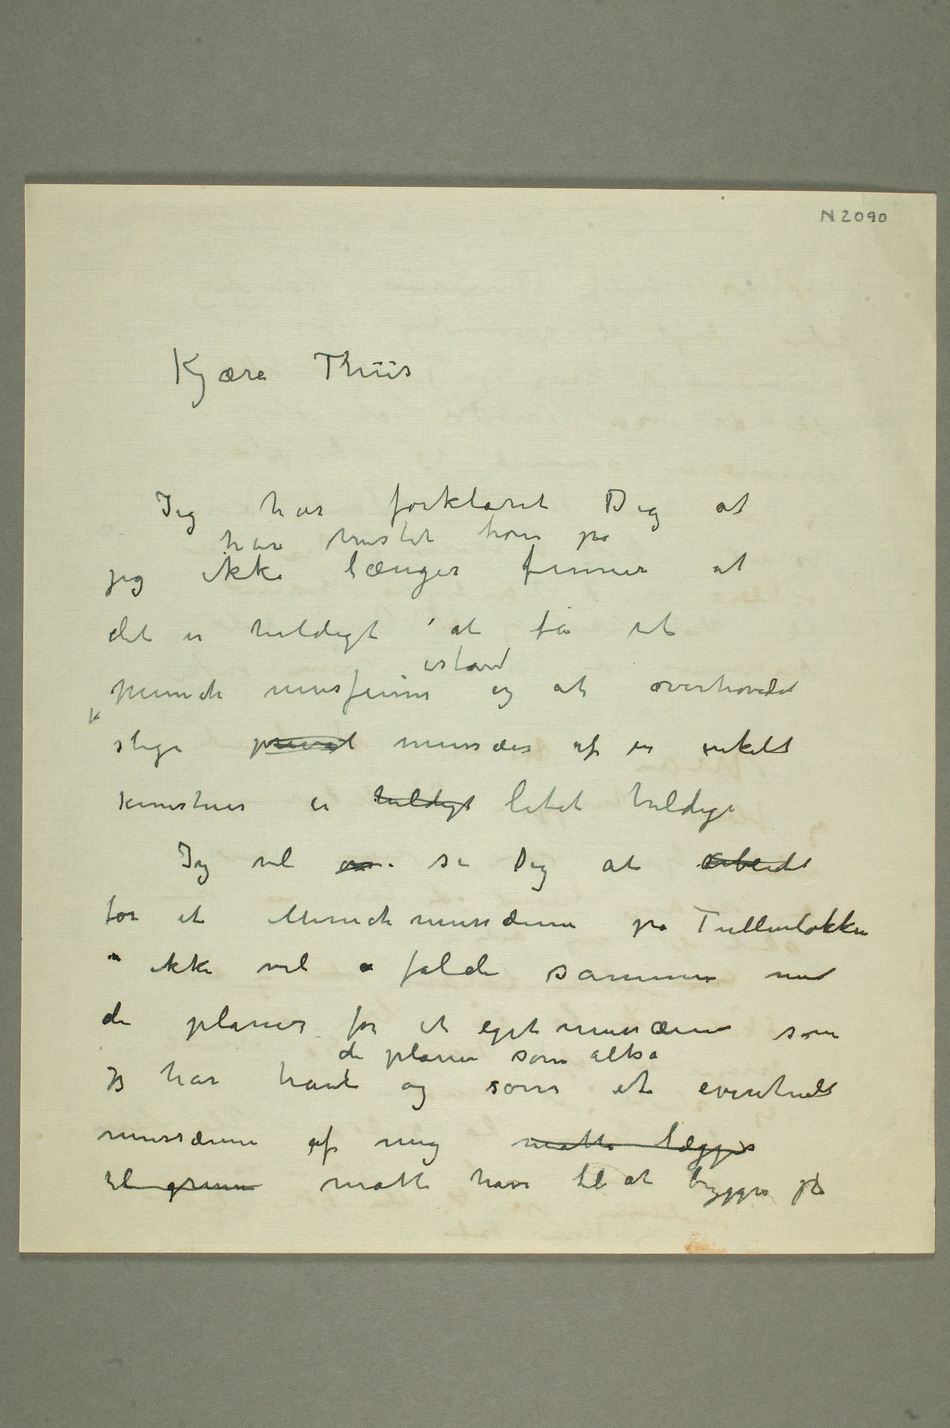 N 2090
Kjære Thiis
Jeg har forklaret Dig at
har mistet troen på
jeg ikke længer finner at
det er heldigt at få et
istand
Munch musæum og at overhovedet
slige privat musæer af en enkelt
kunstner er heldigt litet heldige
Jeg vil si Dig at arbeidet
for et Munchmusæum på Tullinløkken
ikke vil falde sammen med
de planer for et eget musæum som
de planer som altså
jeg har havt og som et eventuelt
musæum af mig måtte lægges
til grunn måtte have til at bygges på